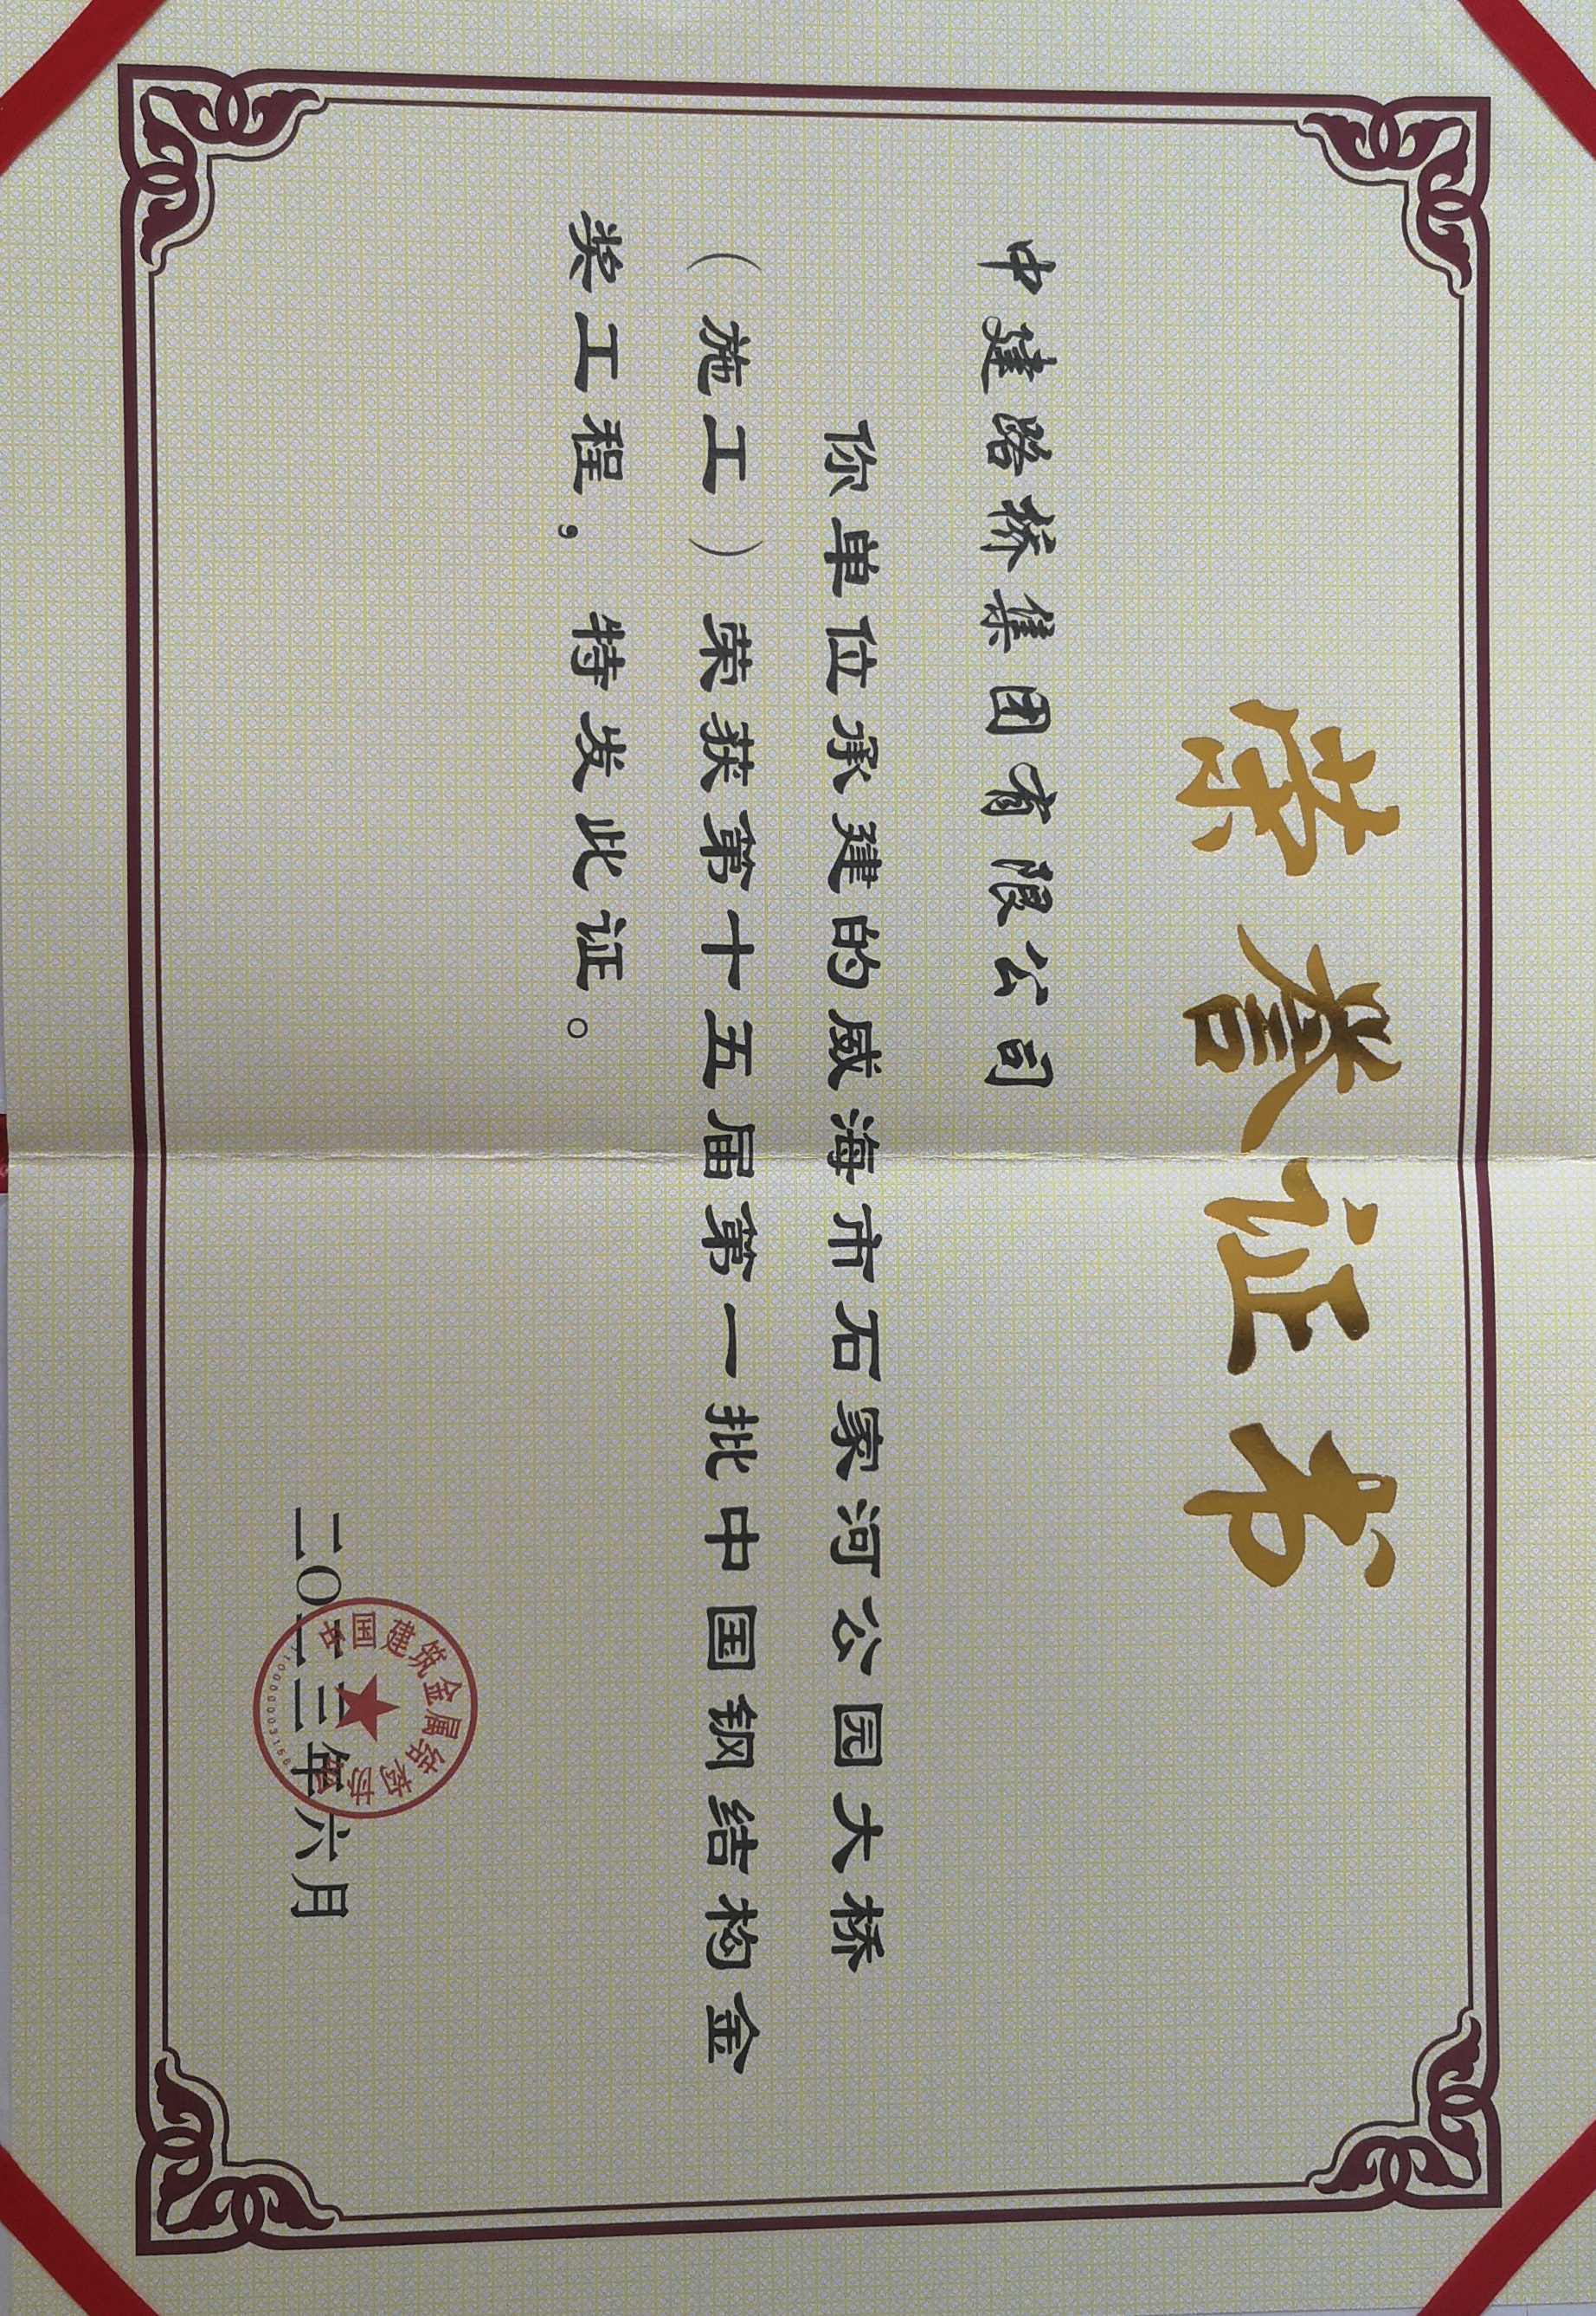 荣誉证书
中建路桥集团有限公司
你单位承建的威海市石家河公园大桥
（施工）荣获第十五届第一批中国钢结构金
奖工程，特发此证。
中国建筑金属结构协会
二〇二三年六月